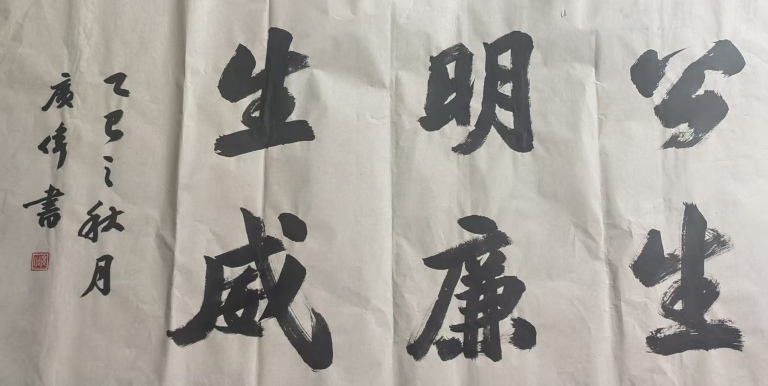 公生
明廉
生威
乙巳之秋月
廣偉書